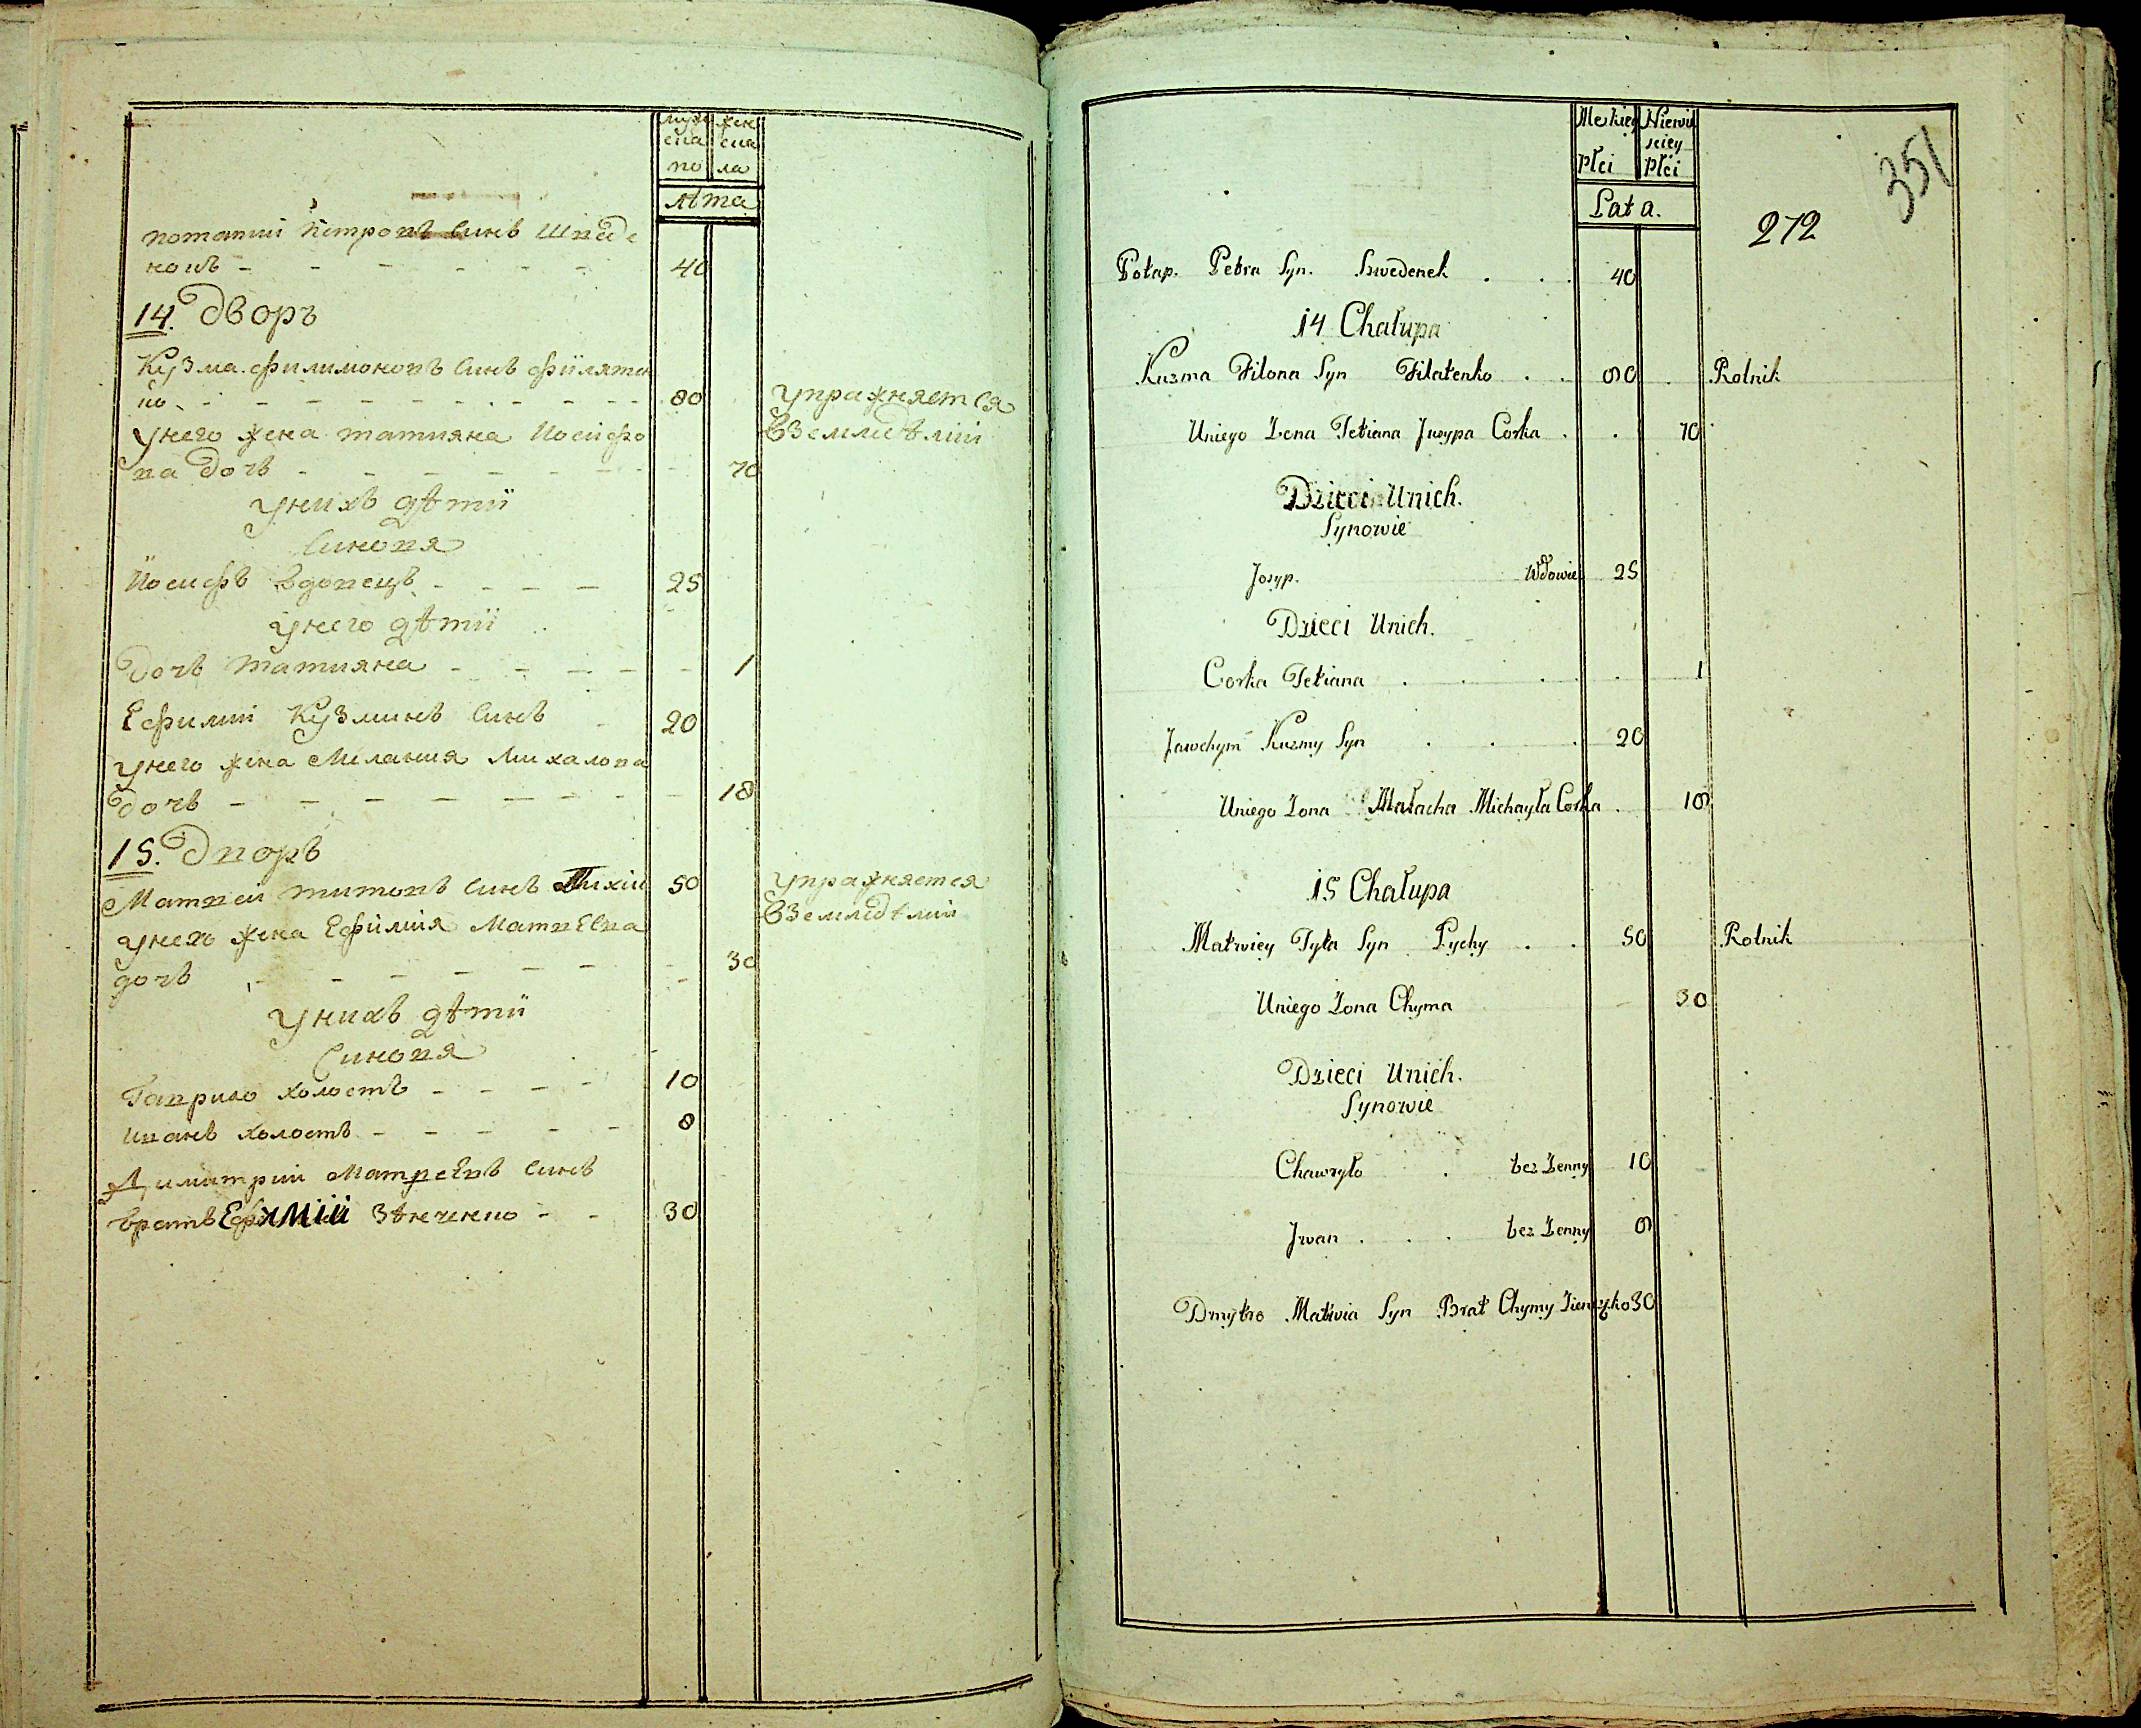 муже жен
ска ска
по ла
лѣта
потапий Петровъ Синъ Шваде
нокъ - - - - - - 40
14. Дворъ
Кузма филимоновъ Синъ филятен
ко - - - - - - - - 80 упражняется
унего жена татияна Иосифо взємледѣлии
ва дочъ - - - - - - - 70
унихъ дѣтий
Синовя
Иосифъ вдовецъ - - - - 25
унего дѣтий
дочъ татияна - - - - - 1
Ефимий Кузминъ Синъ - 20
унего жена Мелания Михалова
дочъ - - - - - - - - 18
15. Дворъ
Матвеи титовъ Синъ Тихии 50 упражняется
унехъ жена Ефимия Матвевна взємледѣлии
дочъ - - - - - - - - 30
унихъ дѣтий
Синовя
Гаврило холостъ - - - - 10
иванъ холостъ - - - - - 8
Димитрий Матвеевъ Синъ
братъ Ефимии Зѣнченко - - 30
Męskiey Niewie
sciey
Płci Płci
Lata.
351
272
Potap. Petra Syn. Szwedenek . . . 40
14 Chałupa
Kuzma Filona Syn Filatenko . . 80 . Rolnik
Uniego Zena Tetiana Jusypa Corka . . 70
Dzieci Unich.
Synowie
Josyp. Wdowiec 25
Dzieci Unich.
Corka Tetiana . . . . 1
Jawchym Kuzmy Syn . . . 20
Uniego Zona Małacha Michayła Corka . 18
15 Chałupa
Matwiey Tyta Syn Tychy . . 50 Rolnik
Uniego Zona Chyma 30
Dzieci Unich.
Synowie
Chawryło . bez Zenny 10
Jwan . . . bez Zenny 8
Dmytro Matwia Syn Brat Chymy Zienczko 30